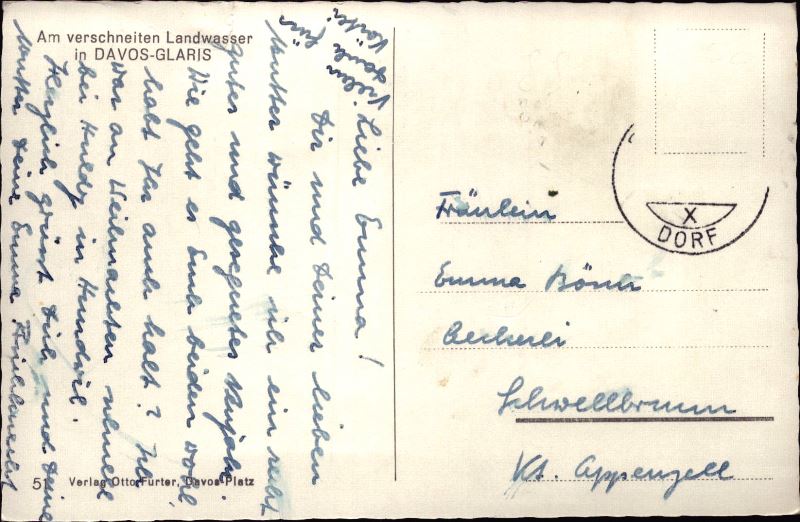 Am verschneiten Landwasser
in DAVOS-GLARIS
Vielen
Dank für
Karte!
Liebe Emma!
Dir und Deiner lieben
Mutter wünsche ich ein recht
gutes und gesegnetes Neujahr.
Wie geht es Euch beiden wohl,
habt Ihr auch kalt? Ich
war an Weihnachten schnell
bei Huldy in Hundwil.
Herzlich grüsst Dich und Deine
Mutter Deine Emma
51 Verlag Otto Furter, Davos-Platz
X
DORF
Fräulein
Emma
Bäckerei
Schwellbrunn
Kt. Appenzell